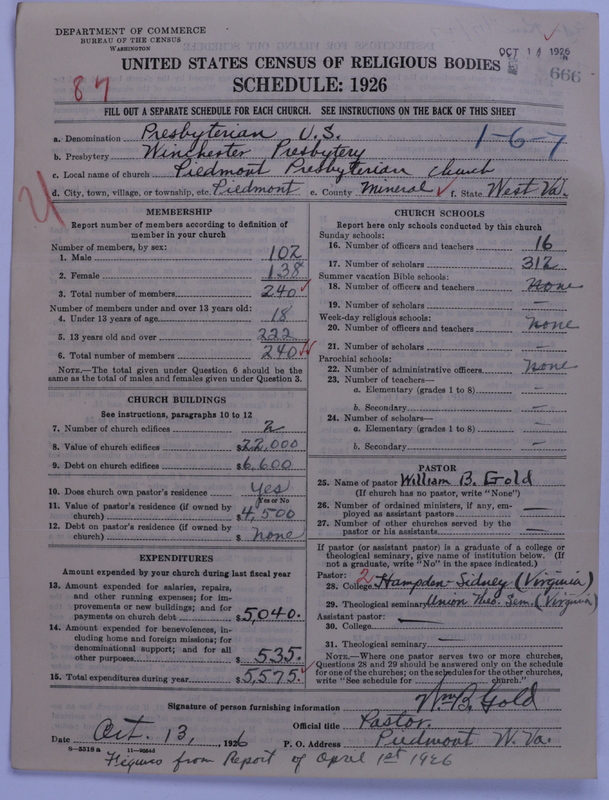 DEPARTMENT OF COMMERCE
BUREAU OF THE CENSUS
WASHINGTON
OCT 14 1926
666
UNITED STATES CENSUS OF RELIGIOUS BODIES
87
SCHEDULE: 1926
FILL OUT A SEPARATE SCHEDULE FOR EACH CHURCH. SEE INSTRUCTIONS ON THE BACK OF THIS SHEET
a. Denomination Presbyterian U.S.
1-6-7
b. Presbytery Winchester Presbytery
c. Local name of church Piedmont Presbyterian church
d. City, town, village, or township, etc. Piedmont e. County Mineral f. State West Va.
MEMBERSHIP
Report number of members according to definition of
member in your church
Number of members, by sex:
1. Male 102
2. Female 138
3. Total number of members 240
Number of members under and over 13 years old:
4. Under 13 years of age 18
5. 13 years old and over 222
6. Total number of members 240
NOTE.—The total given under Question 6 should be the
same as the total of males and females given under Question 3.
CHURCH BUILDINGS
See instructions, paragraphs 10 to 12
7. Number of church edifices 2
8. Value of church edifices $22,000
9. Debt on church edifices $6,600
10. Does church own pastor's residence Yes
Yes or No
11. Value of pastor's residence (if owned by
church) $4,500
12. Debt on pastor's residence (if owned by
church) $ none
EXPENDITURES
Amount expended by your church during last fiscal year
13. Amount expended for salaries, repairs,
and other running expenses; for im-
provements or new buildings; and for
payments on church debt $5,040.
14. Amount expended for benevolences, in-
cluding home and foreign missions; for
denominational support; and for all
other purposes $535.
15. Total expenditures during year $5,575.
CHURCH SCHOOLS
Report here only schools conducted by this church
Sunday schools:
16. Number of officers and teachers 16
17. Number of scholars 312
Summer vacation Bible schools:
18. Number of officers and teachers none
19. Number of scholars —
Week-day religious schools:
20. Number of officers and teachers none
21. Number of scholars —
Parochial schools:
22. Number of administrative officers none
23. Number of teachers—
a. Elementary (grades 1 to 8) —
b. Secondary —
24. Number of scholars—
a. Elementary (grades 1 to 8) —
b. Secondary —
PASTOR
25. Name of pastor William B. Gold
(If church has no pastor, write "None")
26. Number of ordained ministers, if any, em-
ployed as assistant pastors —
27. Number of other churches served by the
pastor or his assistants —
If pastor (or assistant pastor) is a graduate of a college or
theological seminary, give name of institution below. (If
not a graduate, write "No" in the space indicated.)
Pastor: 2
28. College Hampden-Sidney (Virginia)
29. Theological seminary Union Theo. Sem. (Virginia)
Assistant pastor: —
30. College —
31. Theological seminary —
NOTE.—Where one pastor serves two or more churches,
Questions 28 and 29 should be answered only on the schedule
for one of the churches; on the schedules for the other churches,
write "See schedule for church."
Signature of person furnishing information Wm. B. Gold
Official title Pastor.
Date Oct. 13, 1926
P. O. Address Piedmont W. Va.
9-5518a
Figures from Report of April 1st 1926